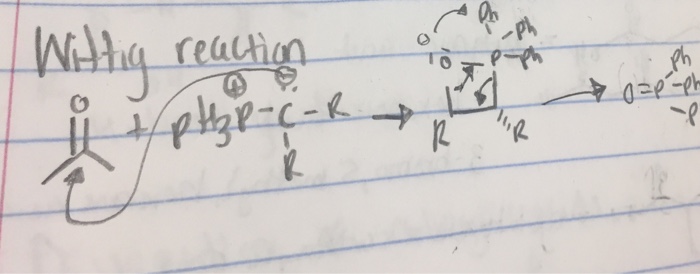 Wittig reaction
O + PH3P⊕-C⊖-R R → O O-P Ph -Ph -Ph R R → O=P Ph -Ph -P